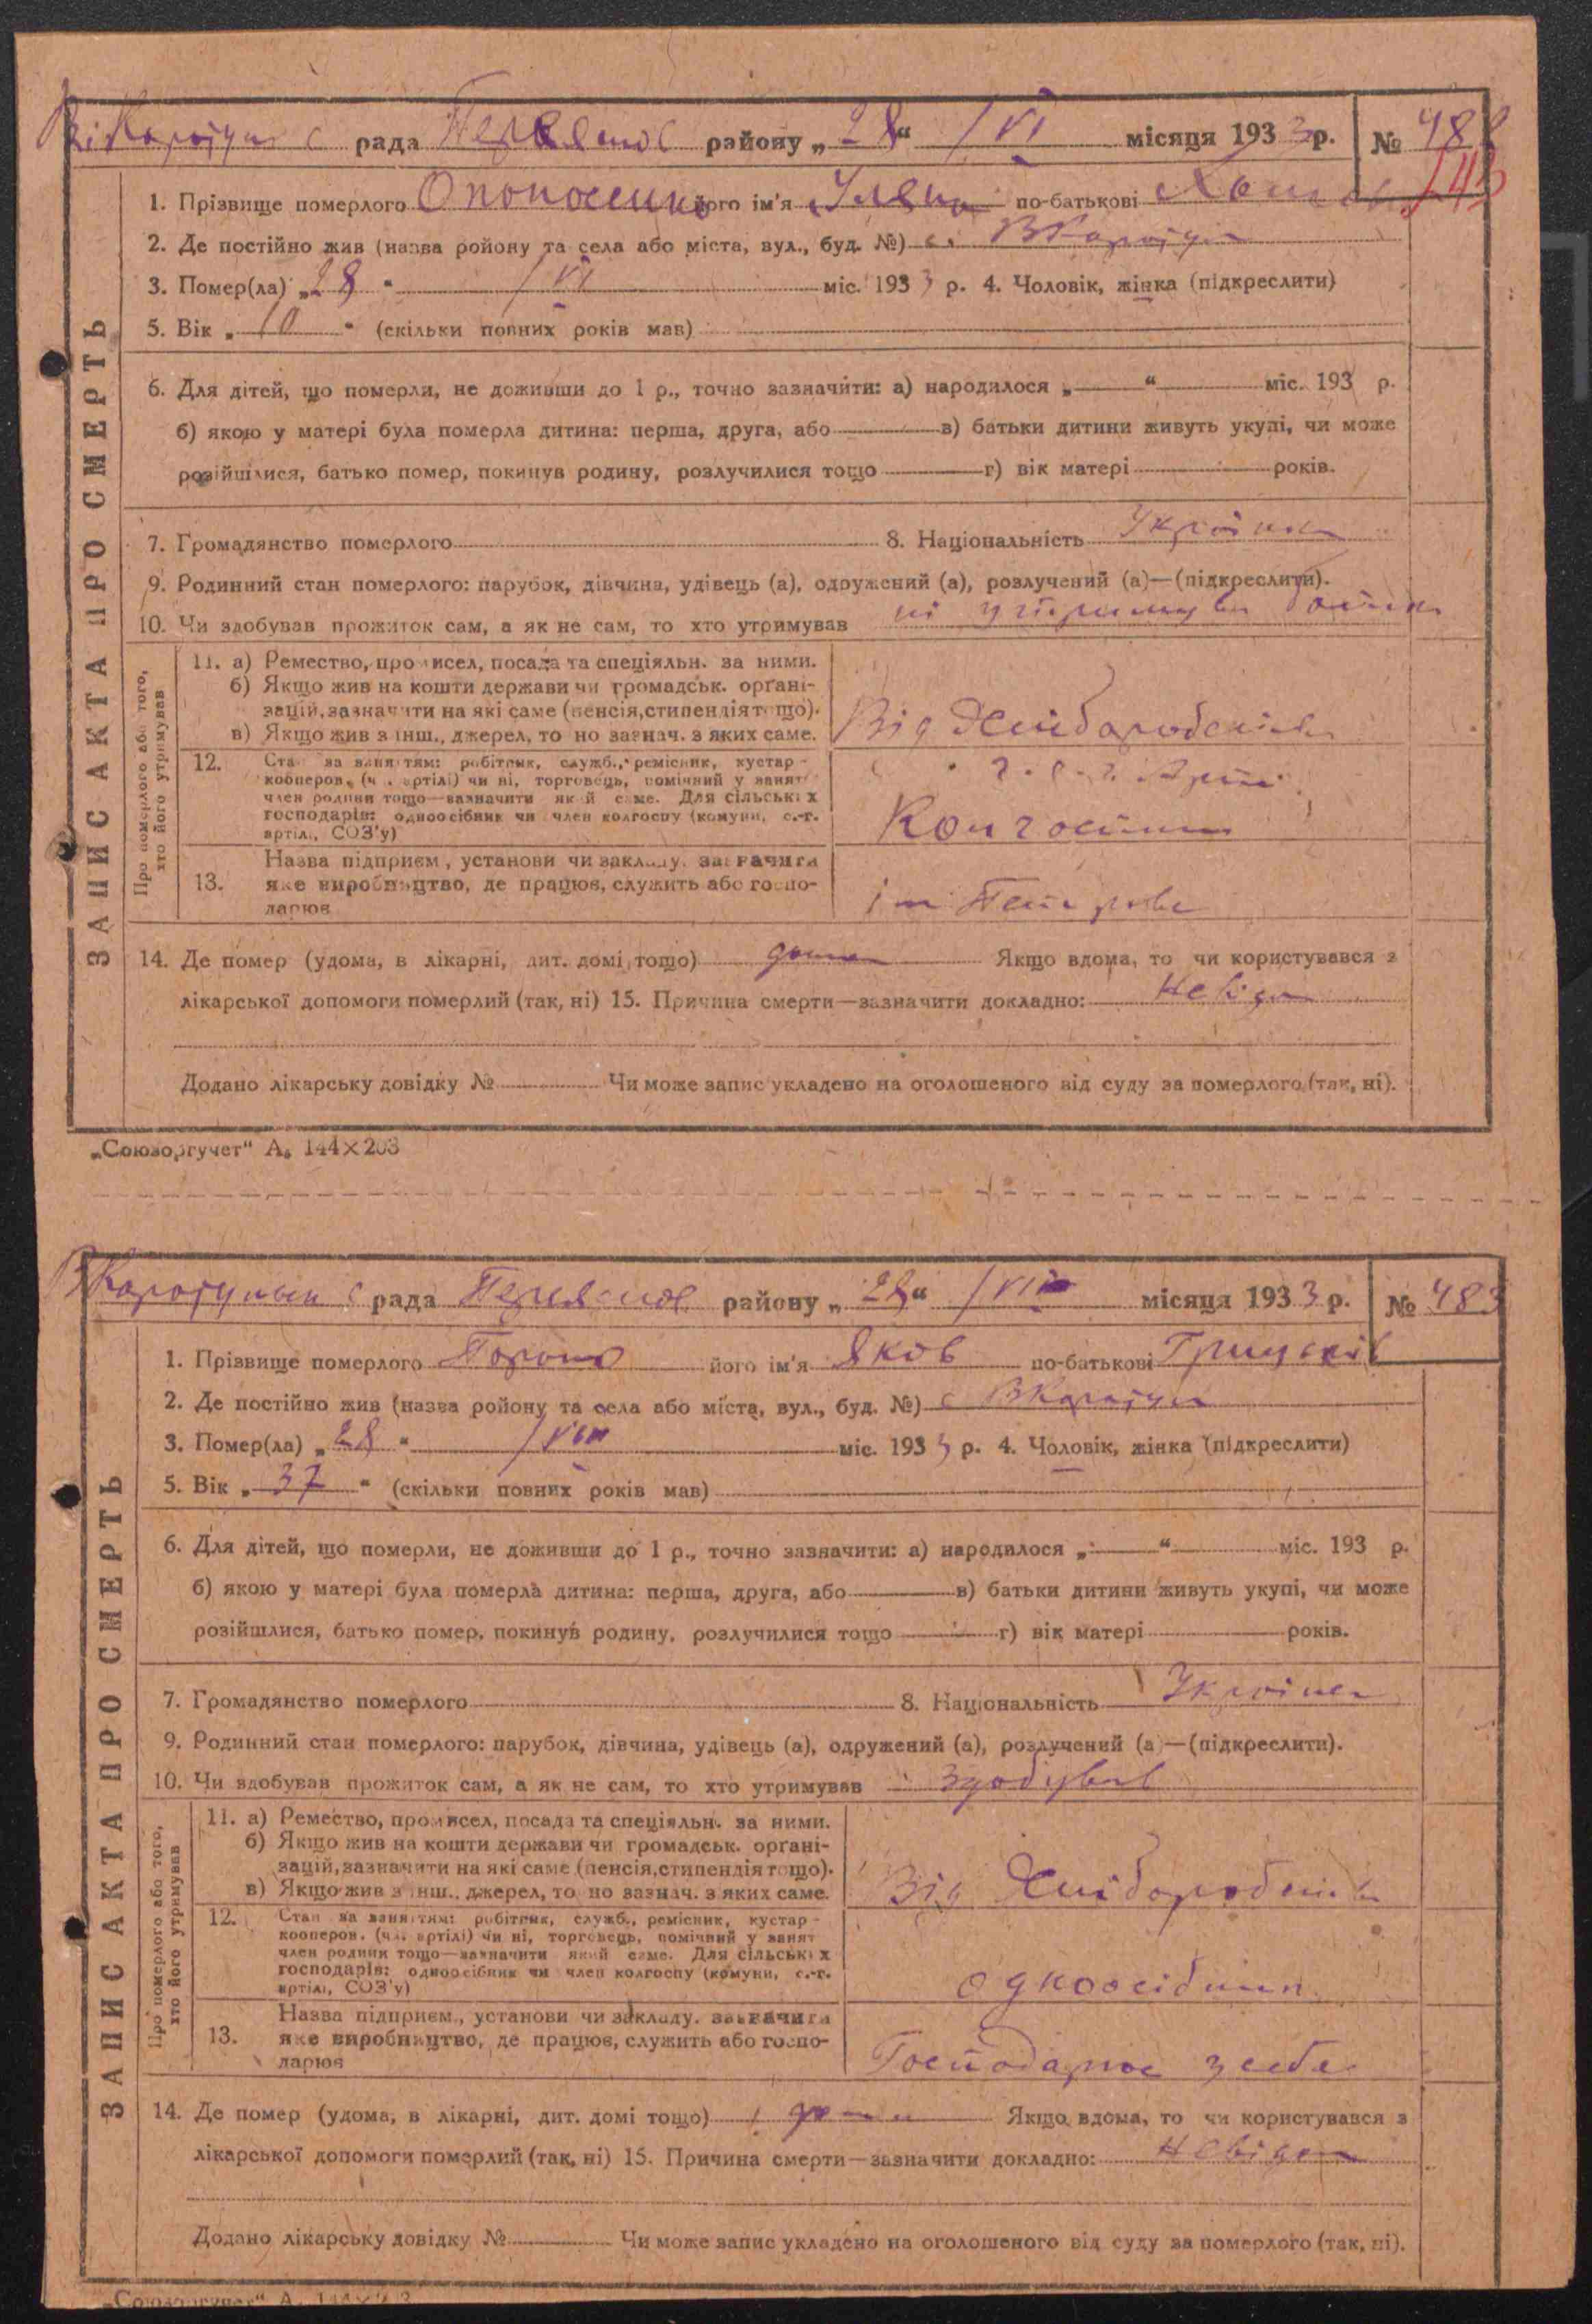 рада району „28“ /VI місяця 1933 р. № 48
143
1. Прізвище померлого його ім'я Уляна по-батькові
2. Де постійно жив (назва ройону та села або міста, вул., буд. №) с. ВКаратул
3. Помер(ла) „28“ /VI міс. 1933 р. 4. Чоловік, жінка (підкреслити)
5. Вік „10“ (скільки повних років мав)
6. Для дітей, що померли, не доживши до 1 р., точно зазначити: а) народилося „ “ міс. 193 р.
б) якою у матері була померла дитина: перша, друга, або в) батьки дитини живуть укупі, чи може
розійшлися, батько помер, покинув родину, розлучилися тощо г) вік матері років.
7. Громадянство померлого 8. Національність Українка
9. Родинний стан померлого: парубок, дівчина, удівець (а), одружений (а), розлучений (а)—(підкреслити).
10. Чи здобував прожиток сам, а як не сам, то хто утримував ні утримував батько
ЗАПИС АКТА ПРО СМЕРТЬ
Про померлого або того, хто його утримував
11. а) Ремество, промисел, посада та спеціяльн. за ними.
б) Якщо жив на кошти держави чи громадськ. орґані-
зацій, зазначити на які саме (пенсія, стипендія тощо).
в) Якщо жив з інш., джерел, то но зазнач. з яких саме.
Від Хліборобства
12. Стан за заняттям: робітник, служб., ремісник, кустар -
кооперов. (чл. артілі) чи ні, торговець, помічний у занят
член родини тощо—зазначити який саме. Для сільських
господарів: одноосібник чи член колгоспу (комуни, с.-г.
артілі, СОЗ'у)
13. Назва підприєм., установи чи закладу. зазначити
яке виробництво, де працює, служить або госпо-
дарює
ім Петровс
14. Де помер (удома, в лікарні, дит. домі тощо) дома Якщо вдома, то чи користувався з
лікарської допомоги померлий (так, ні) 15. Причина смерти—зазначити докладно: Невідом
Додано лікарську довідку № Чи може запис укладено на оголошеного від суду за померлого (так, ні).
„Союзоргучет“ А₆ 144×203
рада району „28“ місяця 1933 р. № 483
1. Прізвище померлого його ім'я Яков по-батькові Грицьків
2. Де постійно жив (назва ройону та села або міста, вул., буд. №) с ВКаратул
3. Помер(ла) „28“ міс. 1933 р. 4. Чоловік, жінка (підкреслити)
5. Вік „37“ (скільки повних років мав)
6. Для дітей, що померли, не доживши до 1 р., точно зазначити: а) народилося „ “ міс. 193 р.
б) якою у матері була померла дитина: перша, друга, або в) батьки дитини живуть укупі, чи може
розійшлися, батько помер, покинув родину, розлучилися тощо г) вік матері років.
7. Громадянство померлого 8. Національність Українец
9. Родинний стан померлого: парубок, дівчина, удівець (а), одружений (а), розлучений (а)—(підкреслити).
10. Чи здобував прожиток сам, а як не сам, то хто утримував здобував
ЗАПИС АКТА ПРО СМЕРТЬ
Про померлого або того, хто його утримував
11. а) Ремество, промисел, посада та спеціяльн. за ними.
б) Якщо жив на кошти держави чи громадськ. орґані-
зацій, зазначити на які саме (пенсія, стипендія тощо).
в) Якщо жив з інш., джерел, то но зазнач. з яких саме.
Від Хліборобства
12. Стан за заняттям: робітник, служб., ремісник, кустар -
кооперов. (чл. артілі) чи ні, торговець, помічний у занят
член родини тощо—зазначити який саме. Для сільських
господарів: одноосібник чи член колгоспу (комуни, с.-г.
артілі, СОЗ'у)
одноосібник
13. Назва підприєм., установи чи закладу. зазначити
яке виробництво, де працює, служить або госпо-
дарює
Господарює у себе
14. Де помер (удома, в лікарні, дит. домі тощо) дома Якщо вдома, то чи користувався з
лікарської допомоги померлий (так, ні) 15. Причина смерти—зазначити докладно: Невідом
Додано лікарську довідку № Чи може запис укладено на оголошеного від суду за померлого (так, ні).
„Союзоргучет“ А 144×203